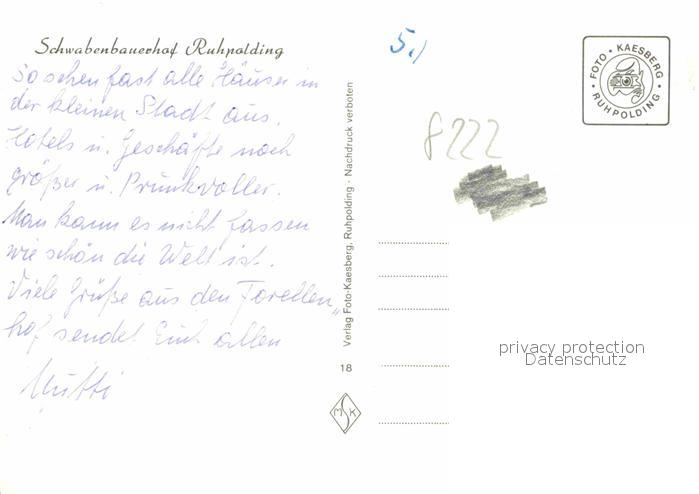 Schwabenbauerhof Ruhpolding
So sehen fast alle Häuser in
der kleinen Stadt aus.
Hotels u. Geschäfte noch
größer u. Prunkvoller.
Man kann es nicht fassen
wie schön die Welt ist.
Viele Grüße aus den Forellen
hof" sendet Euch allen
Mutti
Verlag Foto-Kaesberg, Ruhpolding - Nachdruck verboten
18
MSK
5,/
8222
FOTO • KAESBERG • RUHPOLDING •
privacy protection
Datenschutz